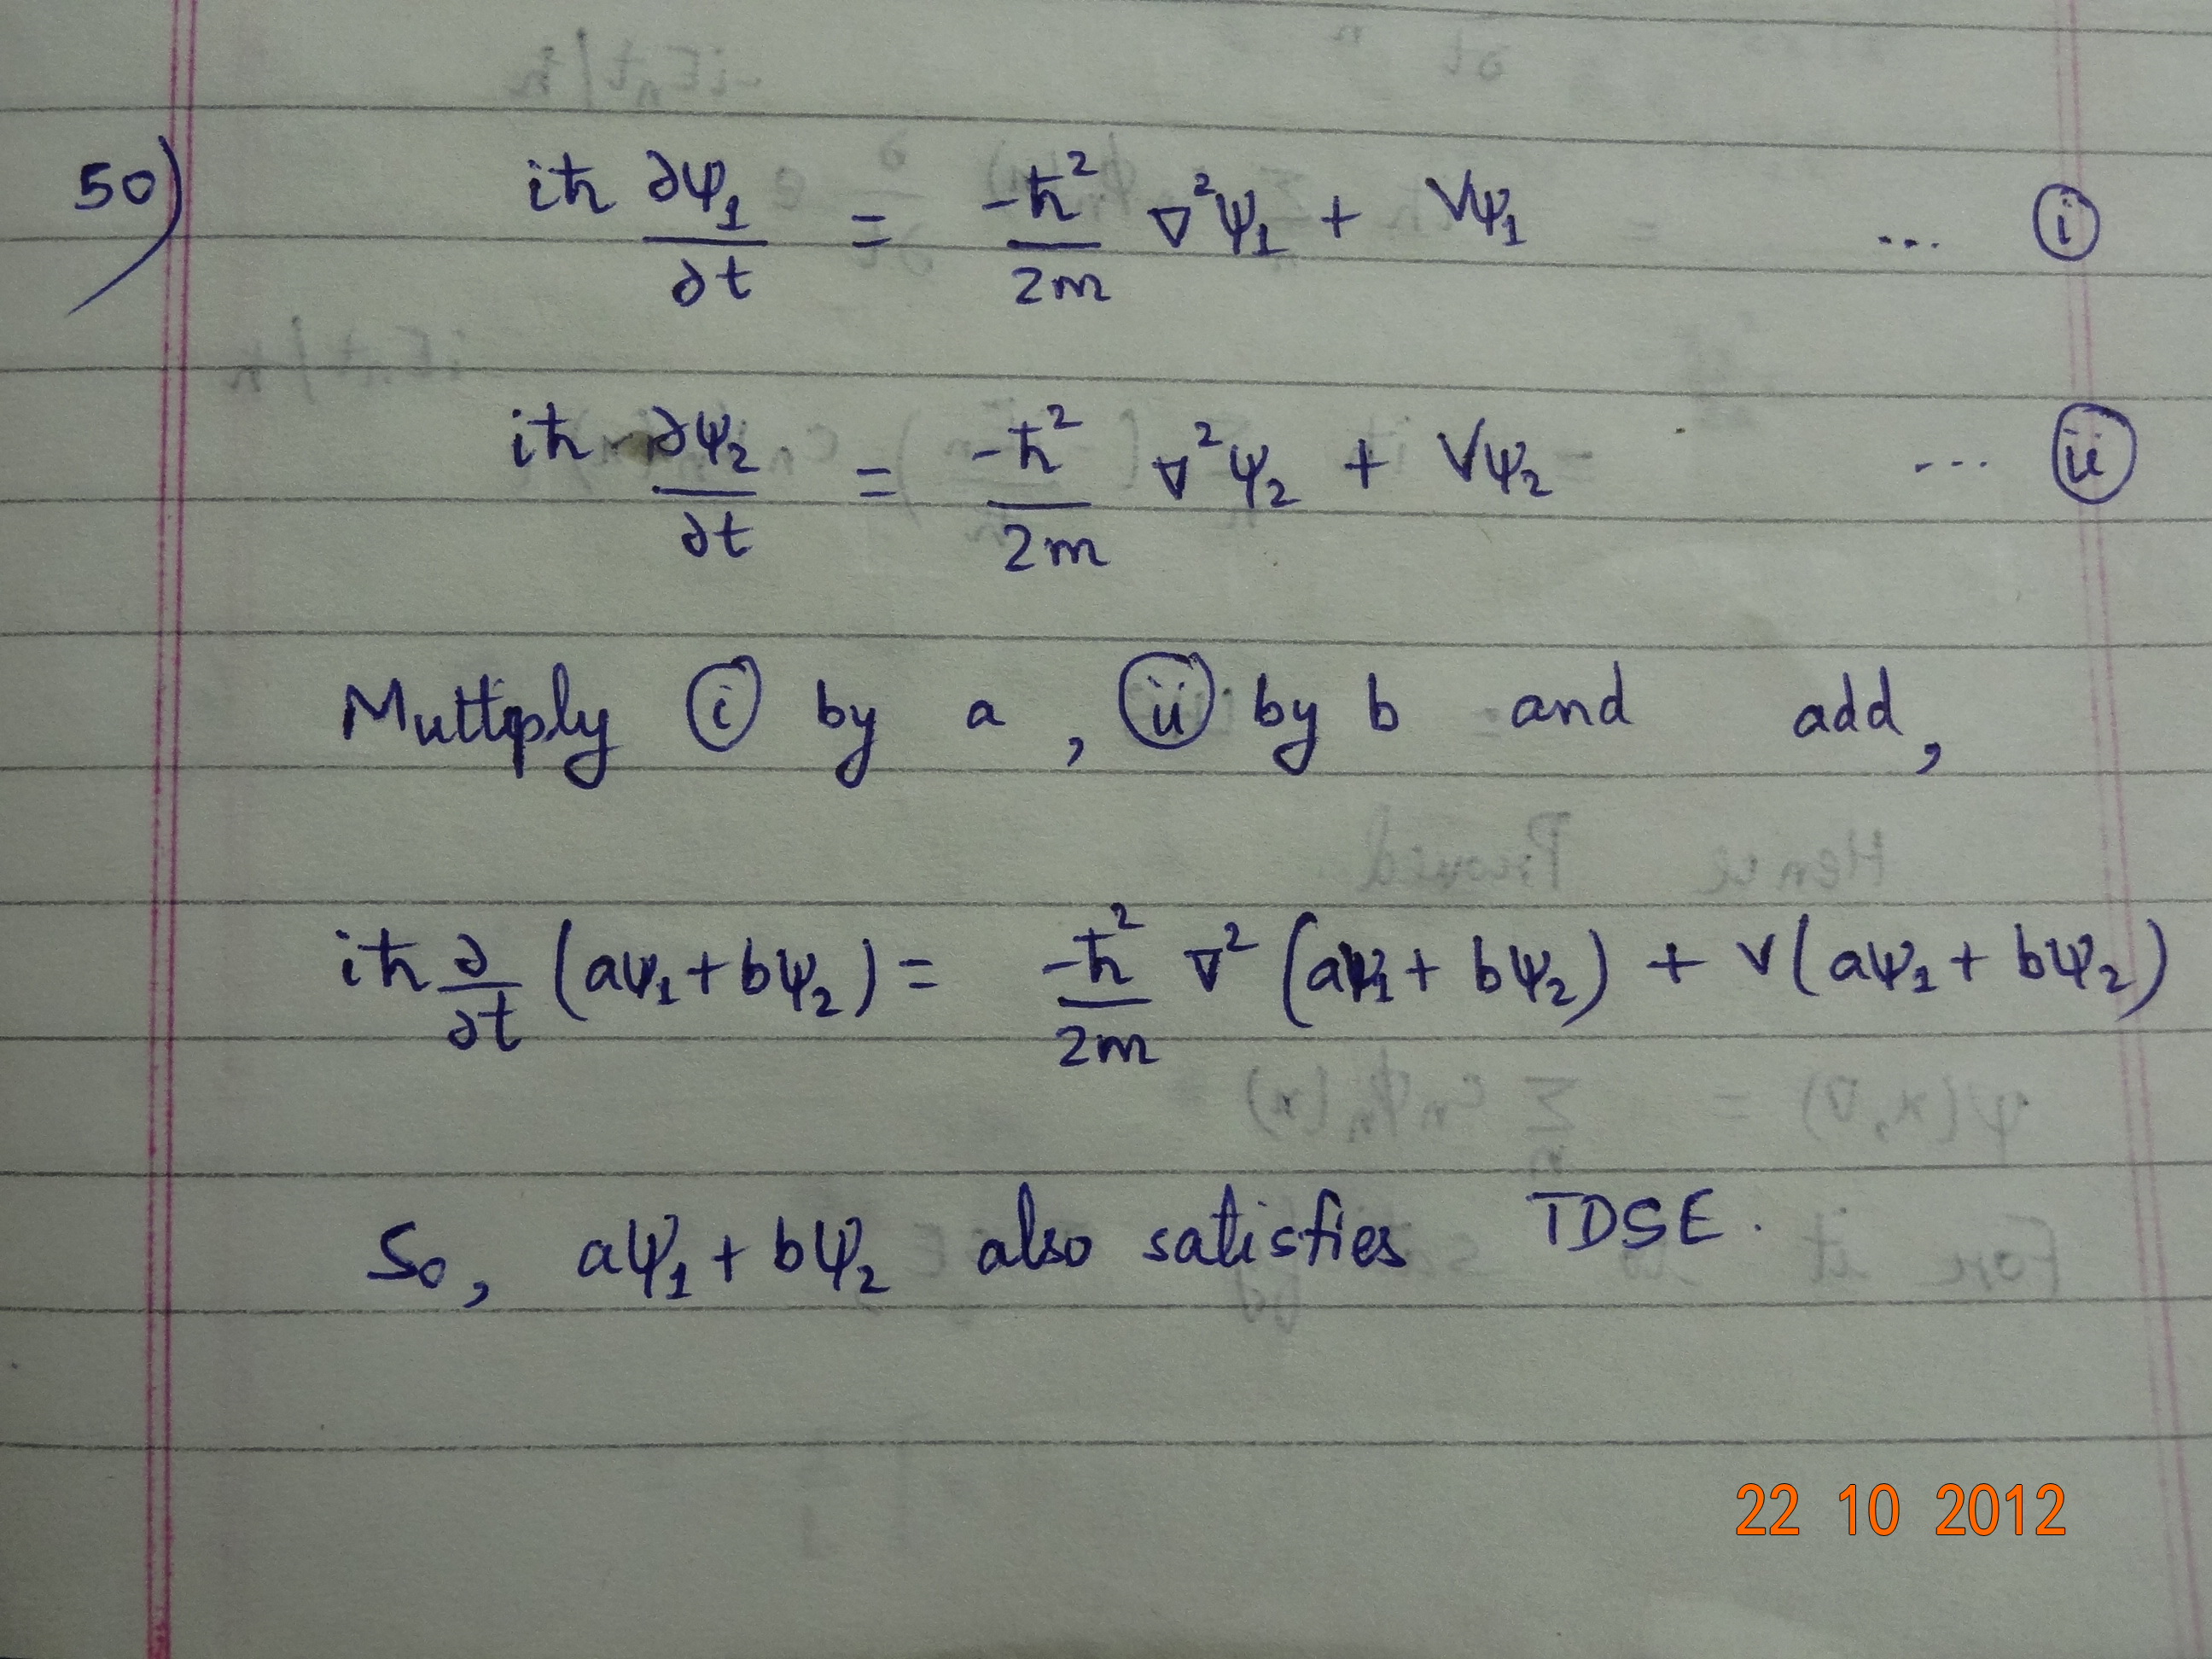 50) iħ ∂ψ₁/∂t = -ħ²/2m ∇²ψ₁ + Vψ₁ ... (i)
iħ ∂ψ₂/∂t = -ħ²/2m ∇²ψ₂ + Vψ₂ ... (ii)
Multiply (i) by a, (ii) by b and add,
iħ ∂/∂t (aψ₁ + bψ₂) = -ħ²/2m ∇² (aψ₁ + bψ₂) + V(aψ₁ + bψ₂)
So, aψ₁ + bψ₂ also satisfies TDSE.
22 10 2012